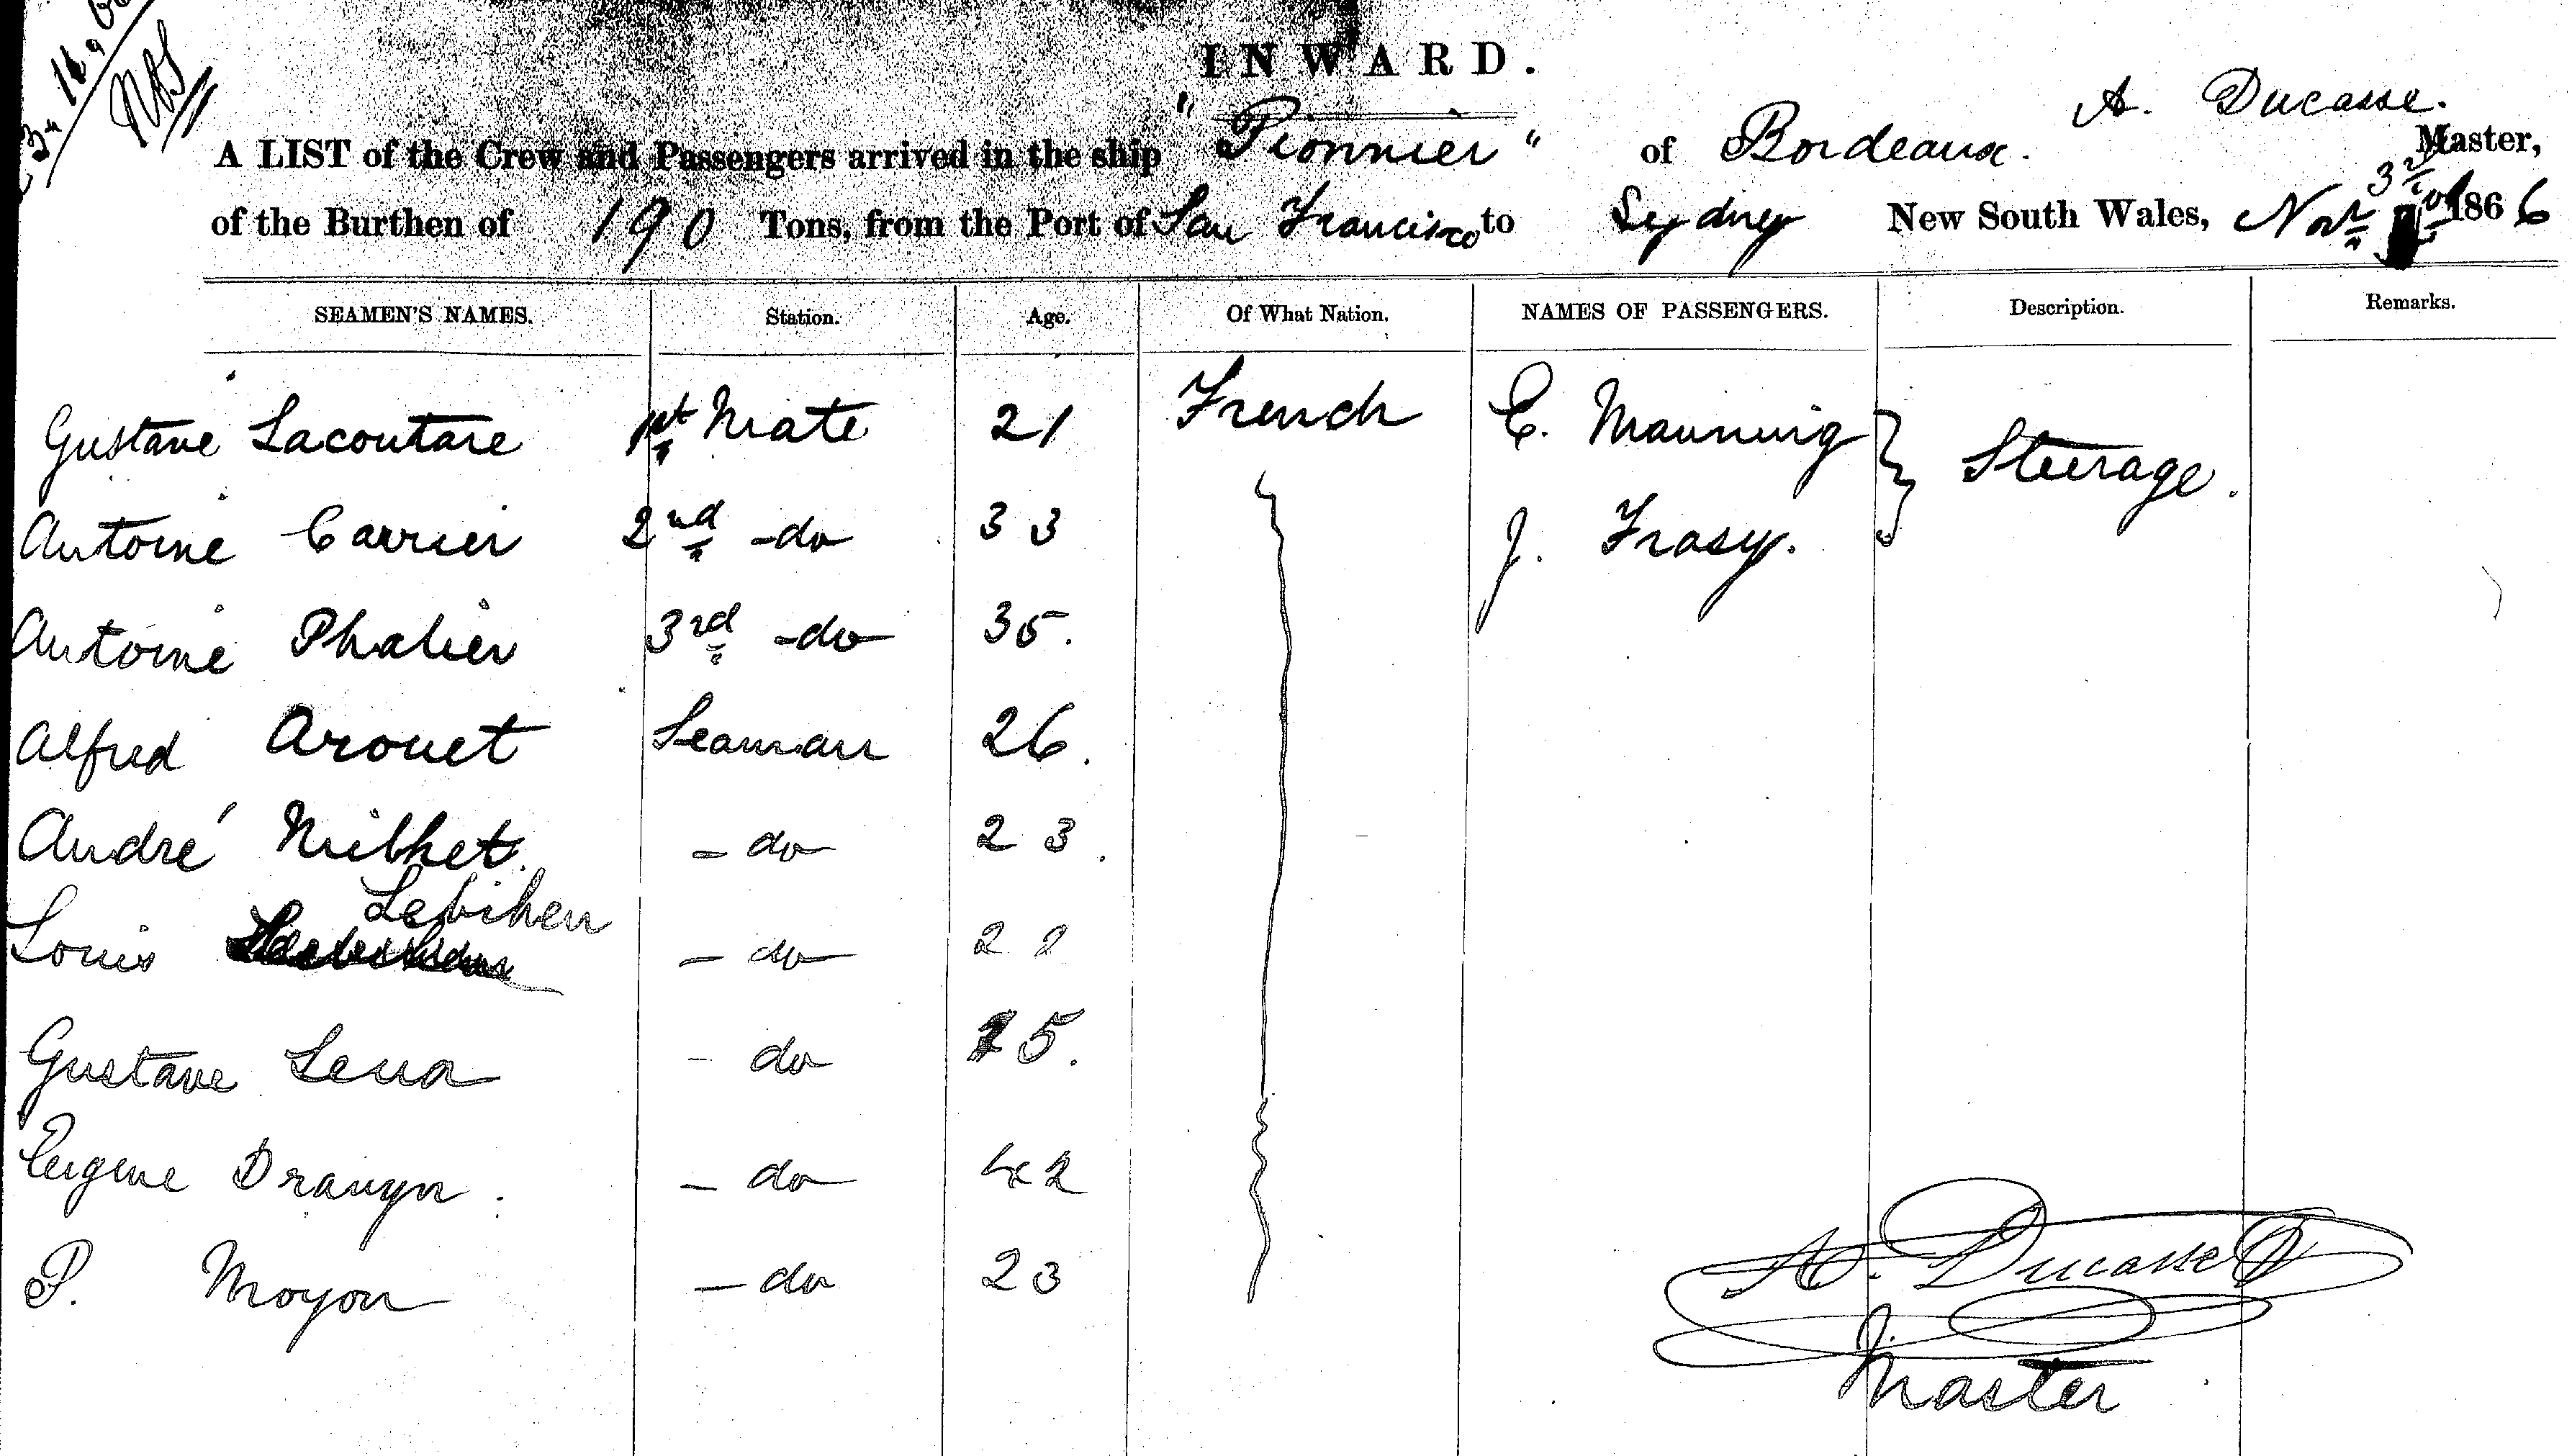 INWARD.
A LIST of the Crew and Passengers arrived in the ship "Pionnier" of Bordeaux. A. Ducasse. Master,
of the Burthen of 190 Tons, from the Port of San Francisco to Sydney New South Wales, Novr 3rd 1866
SEAMEN'S NAMES. Station. Age. Of What Nation. NAMES OF PASSENGERS. Description. Remarks.
Gustave Lacoutare 1st Mate 21 French E. Manning Steerage.
Antoine Carrier 2nd -do 33 J. Frasy.
Antoine Phalier 3rd -do 35.
Alfred Arouet Seaman 26.
André Milhet. - do 23.
Lebihen
Louis - do 22
Gustave Lena - do 15.
Eugene - do 42
P. Moyon - do 23
A. Ducasse
Master